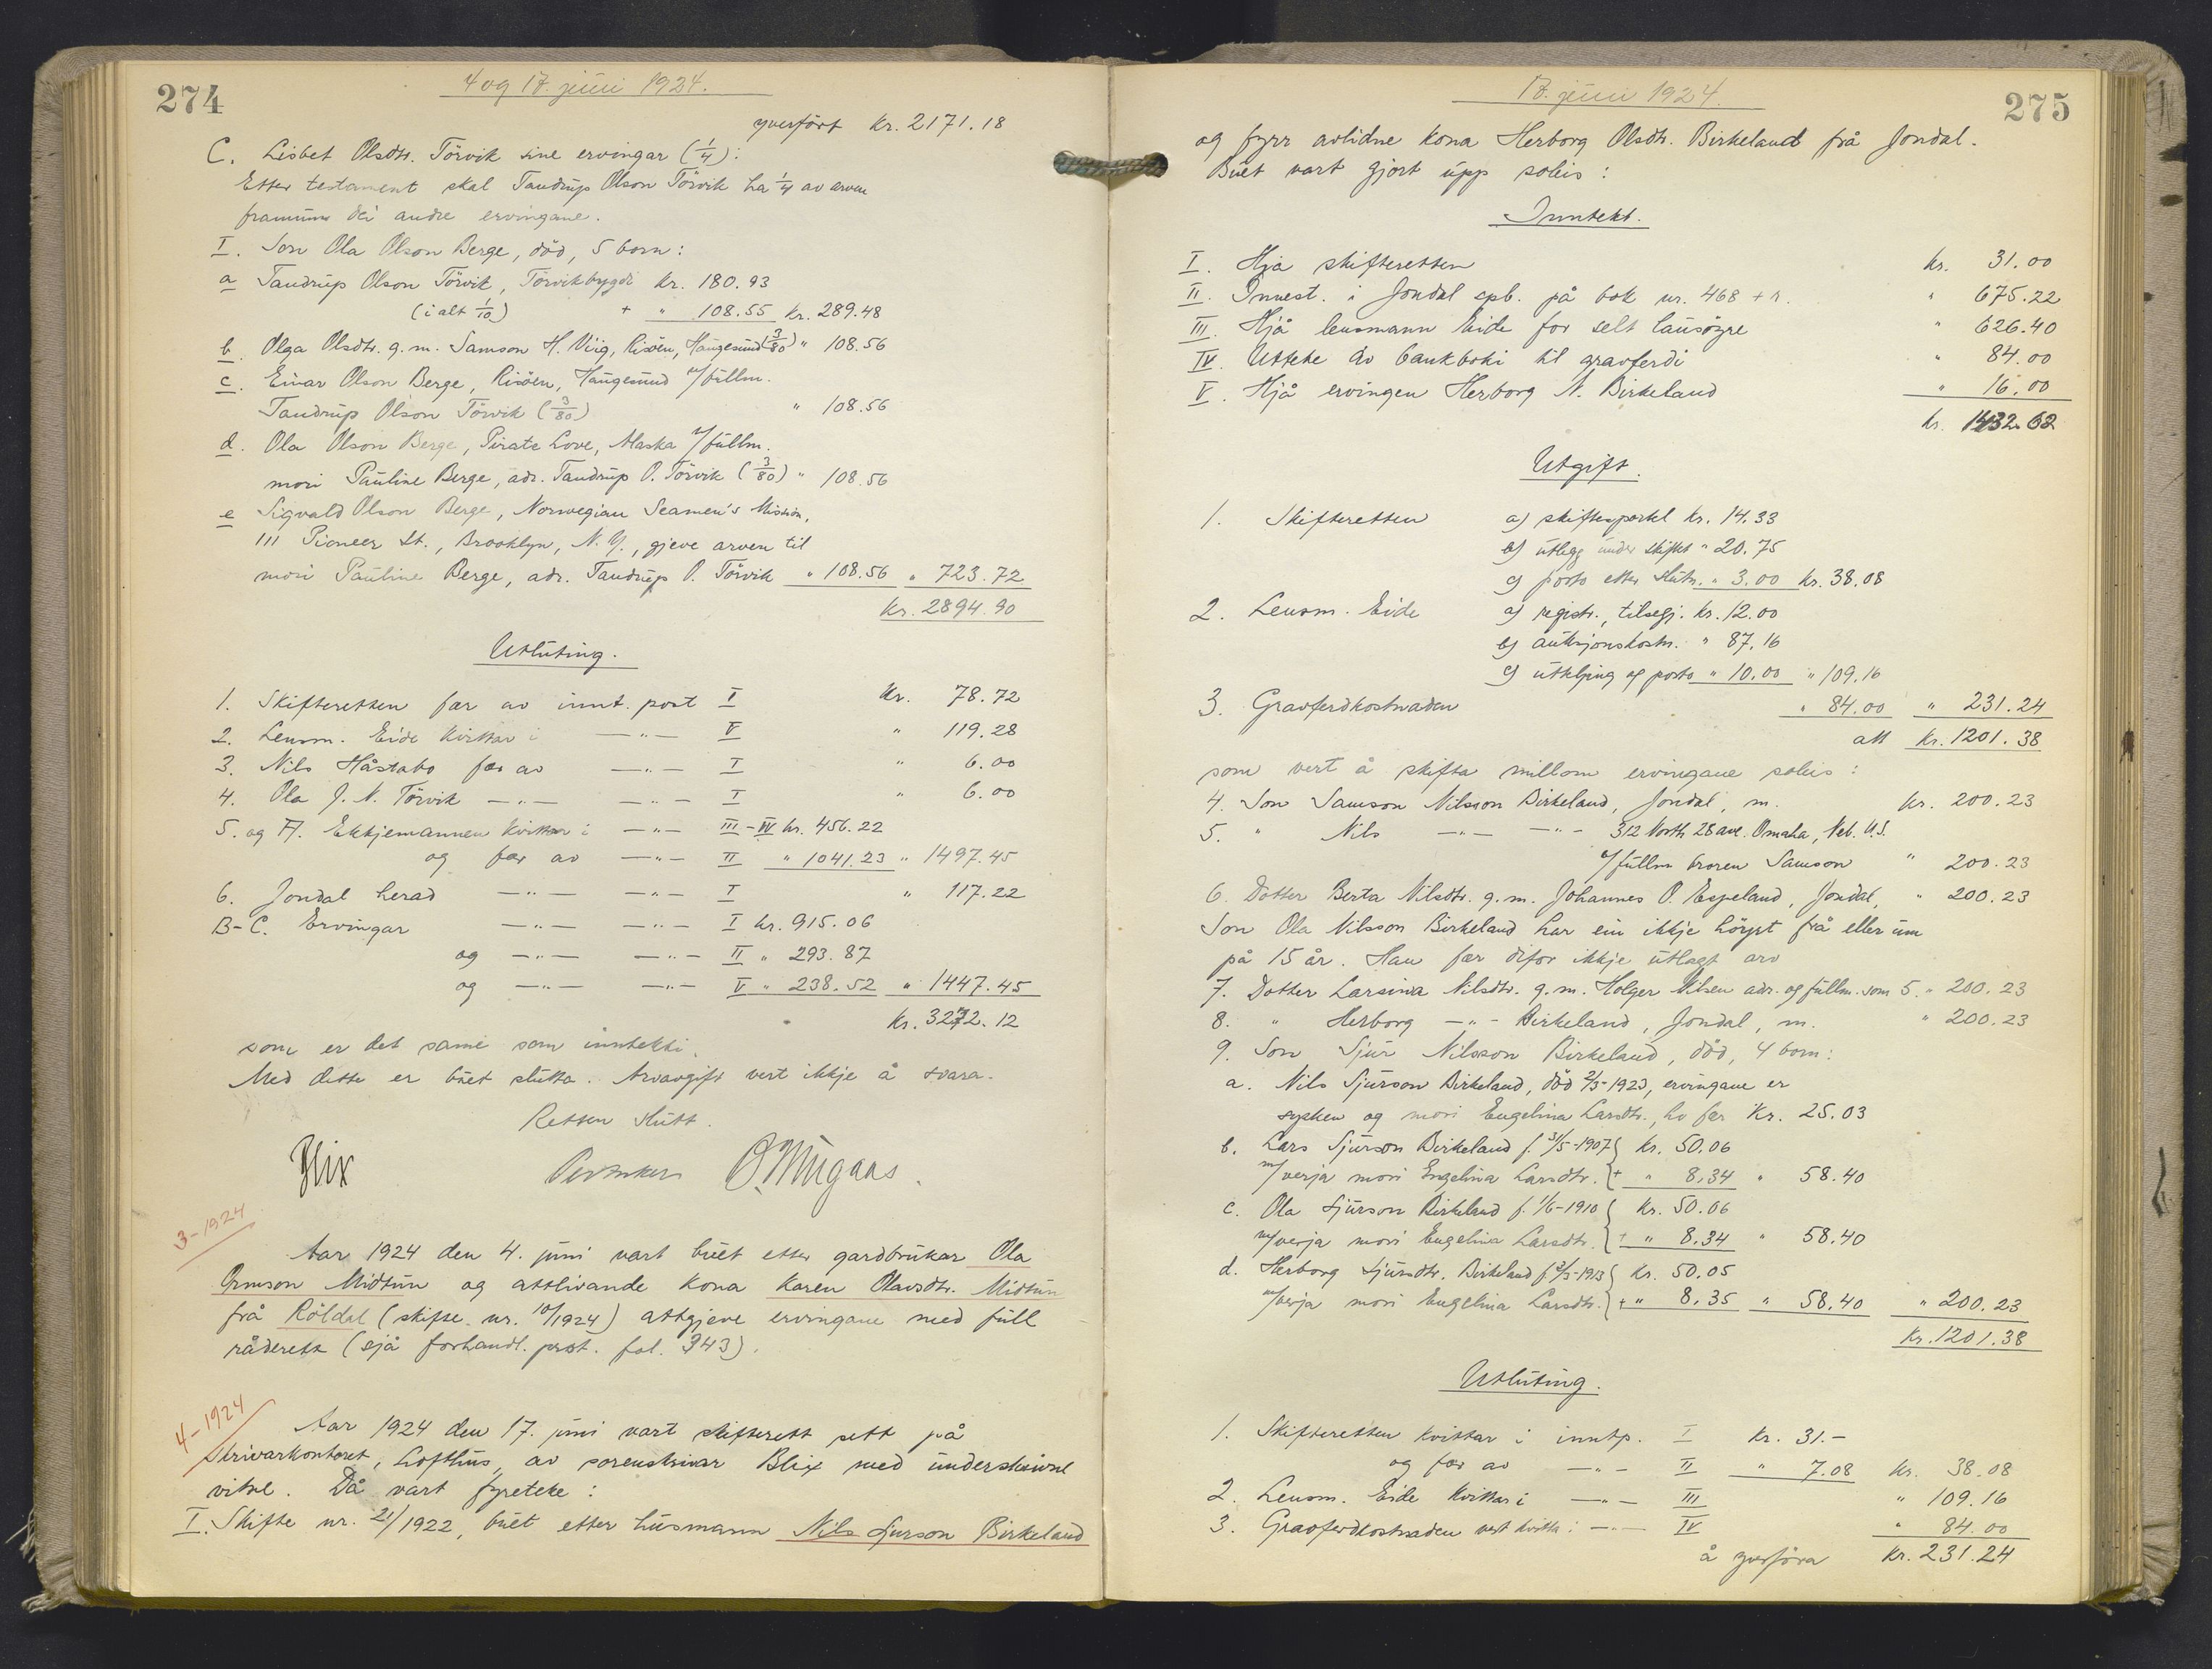 274
4 og 17. juni 1924.
yverført kr. 2171.18
C. Lisbet Olsdtr. Törvik sine ervingar (1/4):
Etter testament skal Taudrup Olson Törvik ha 1/4 av arven
framum dei andre ervingane.
I. Son Ola Olson Berge, död, 5 born:
a Taudrup Olson Törvik, Törvikbygdi kr. 180.93
(i alt 1/10) + " 108.55 kr. 289.48
b. Olga Olsdtr. g.m. Samson H. Viig, Risöen, Haugesund (3/80) " 108.56
c. Einar Olson Berge, Risöen, Haugesund m/fullm.
Taudrup Olson Törvik (3/80) " 108.56
d. Ola Olson Berge, Pirate Cove, Alaska m/fullm.
mori Pauline Berge, adr. Taudrup O. Törvik (3/80) " 108.56
e Sigvald Olson Berge, Norwegian Seamen's Mission,
111 Pioneer St., Brooklyn, N.Y., gjeve arven til
mori Pauline Berge, adr. Taudrup O. Törvik " 108.56 " 723.72
Kr. 2894.90
Utluting.
1. Skifteretten fær av innt. post I Kr. 78.72
2. Lensm. Eide kvittar i —"— V " 119.28
3. Nils Håstabø fær av —"— I " 6.00
4. Ola J. N. Törvik —"— —"— I " 6.00
5. og A. Ekkjemannen kvittar i —"— III-IV kr. 456.22
og fær av —"— II " 1041.23 " 1497.45
6. Jondal herad —"— —"— I " 117.22
B-C. Ervingar —"— —"— I kr. 915.06
og —"— —"— II " 293.87
og —"— —"— V " 238.52 " 1447.45
Kr. 3272.12
som er det same som inntekti.
Med dette er buet slutta. Arvavgift vert ikkje å svara.
Retten slutt.
Blix O. Mugaas.
3-1924
Aar 1924 den 4. juni vart buet etter gardbrukar Ola
Ormson Midtun og attlivande kona Karen Olavsdtr. Midtun
frå Röldal (skifte nr. 10/1924) attgjeve ervingane med full
råderett (sjå forhandl. prot. fol. 343).
4-1924
Aar 1924 den 17. juni vart skifterett sett på
Skrivarkontoret, Lofthus, av sorenskrivar Blix med underskrivne
vitne. Då vart fyreteke:
I. Skifte nr. 21/1922, buet etter husmann Nils Sjurson Birkeland
275
17. juni 1924.
og fyrr avlidne kona Herborg Olsdtr. Birkeland frå Jondal.
Buet vart gjort upp soleis:
Inntekt.
I. Hjå skifteretten kr. 31.00
II. Innest. i Jondal spb. på bok nr. 468 + r. " 675.22
III. Hjå lensmann Eide for selt lausöyre " 626.40
IV. Utteke av bankboki til gravferdi " 84.00
V. Hjå ervingen Herborg N. Birkeland " 16.00
kr. 1432.62
Utgift.
1. Skifteretten a) skiftesportel kr. 14.33
b) utlegg under skiftet " 20.75
c) porto etter slutn. " 3.00 kr. 38.08
2. Lensm. Eide a) registr., tilsegj. kr. 12.00
b) auksjonskostn. " 87.16
c) utbljing og porto " 10.00 " 109.16
3. Gravferdkostnaden " 84.00 " 231.24
att kr. 1201.38
som vert å skifta millom ervingane soleis:
4. Son Samson Nilsson Birkeland, Jondal, m. kr. 200.23
5. " Nils —"— —"— 312 North 28 ave. Omaha, Neb. U.S.
m/fullm broren Samson " 200.23
6. Dotter Berta Nilsdtr. g.m. Johannes O. Espeland, Jondal, " 200.23
Son Ola Nilsson Birkeland har ein ikkje höyrt frå eller um
på 15 år. Han fær difor ikkje utlagt arv
7. Dotter Larsina Nilsdtr. g.m. Holger Nilsen adr. og fullm. som 5. " 200.23
8. " Herborg —"— Birkeland, Jondal, m. " 200.23
9. Son Sjur Nilsson Birkeland, död, 4 born:
a. Nils Sjurson Birkeland, död 2/5-1923, ervingane er
sysken og mori Engelina Larsdtr., ho fær Kr. 25.03
b. Lars Sjurson Birkeland f. 31/5-1907 } kr. 50.06
m/verja mori Engelina Larsdtr. } + " 8.34 " 58.40
c. Ola Sjurson Birkeland f. 1/6-1910 } kr. 50.06
m/verja mori Engelina Larsdtr. } + " 8.34 " 58.40
d. Herborg Sjursdtr. Birkeland f. 2/3-1913 } kr. 50.05
m/verja mori Engelina Larsdtr. } + " 8.35 " 58.40 " 200.23
Kr. 1201.38
Utluting.
1. Skifteretten kvittar i inntp. I Kr. 31.-
og fær av —"— II " 7.08 kr. 38.08
2. Lensm. Eide kvittar i —"— III " 109.16
3. Gravferdkostnaden vert kvitta i —"— IV " 84.00
å yverföra kr. 231.24